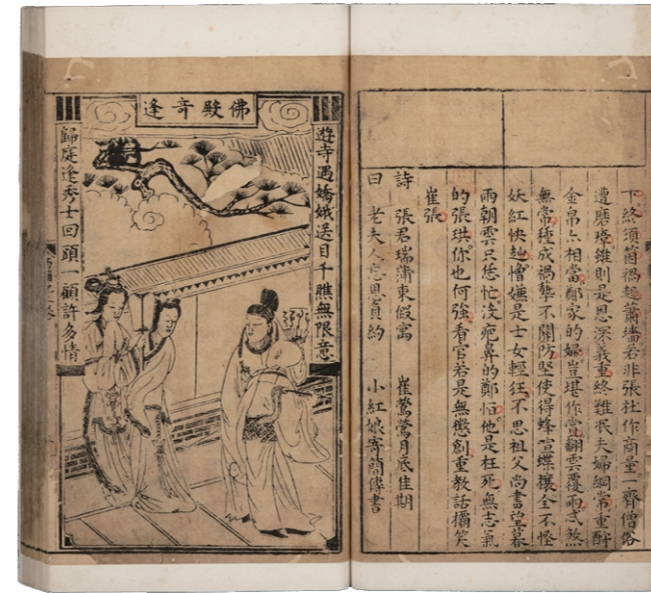 下終須箇禍起蕭墻若非張杜作商量一齊僧俗
遭磨瘴雖則是恩深義重終難泯夫婦綱常重酧
金帛亦相當鄭家的婦豈堪作賞翻雲覆雨忒煞
無常種成禍孽不關防堅使得蜂喧蝶穰全不怪
妖紅快趂憎嫌是士女輕狂不思祖父尚書望暮
雨朝雲只恁忙沒疤鼻的鄭恒他是枉死無志氣
的張珙你也何強看官若是無懲創重教話欛笑
崔張
詩 張君瑞蒲東假寓 崔鶯鶯月底佳期
曰 老夫人忘恩負約 小紅娘寄簡傳書
佛殿竒逢
遊寺遇嬌娥送目千瞧無限意
歸庭逢秀士回頭一顧許多情